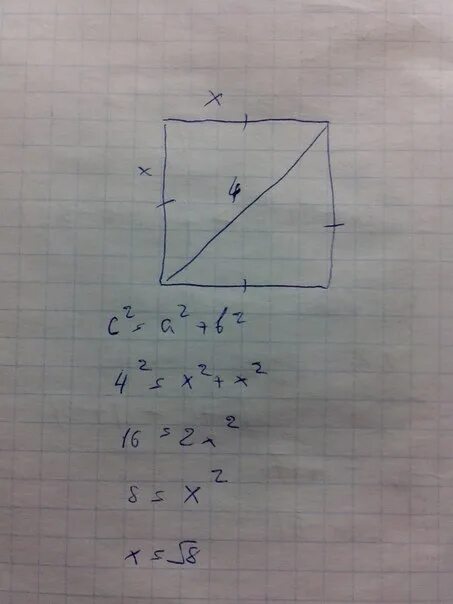 x
x
4
c² = a² + b²
4² = x² + x²
16 = 2x²
8 = x²
x = √8